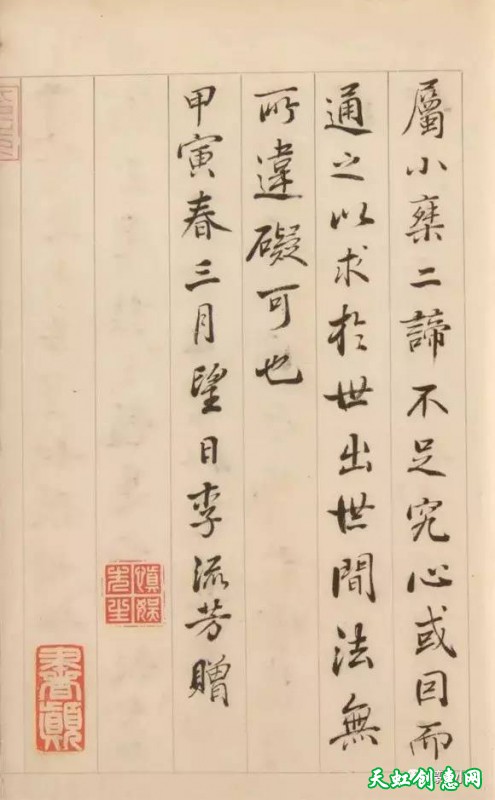 屬小椉二諦不足究心或因而
通之以求於世出世間法無
所違礙可也
甲寅春三月望日李流芳贈
書顛
天虹创惠网